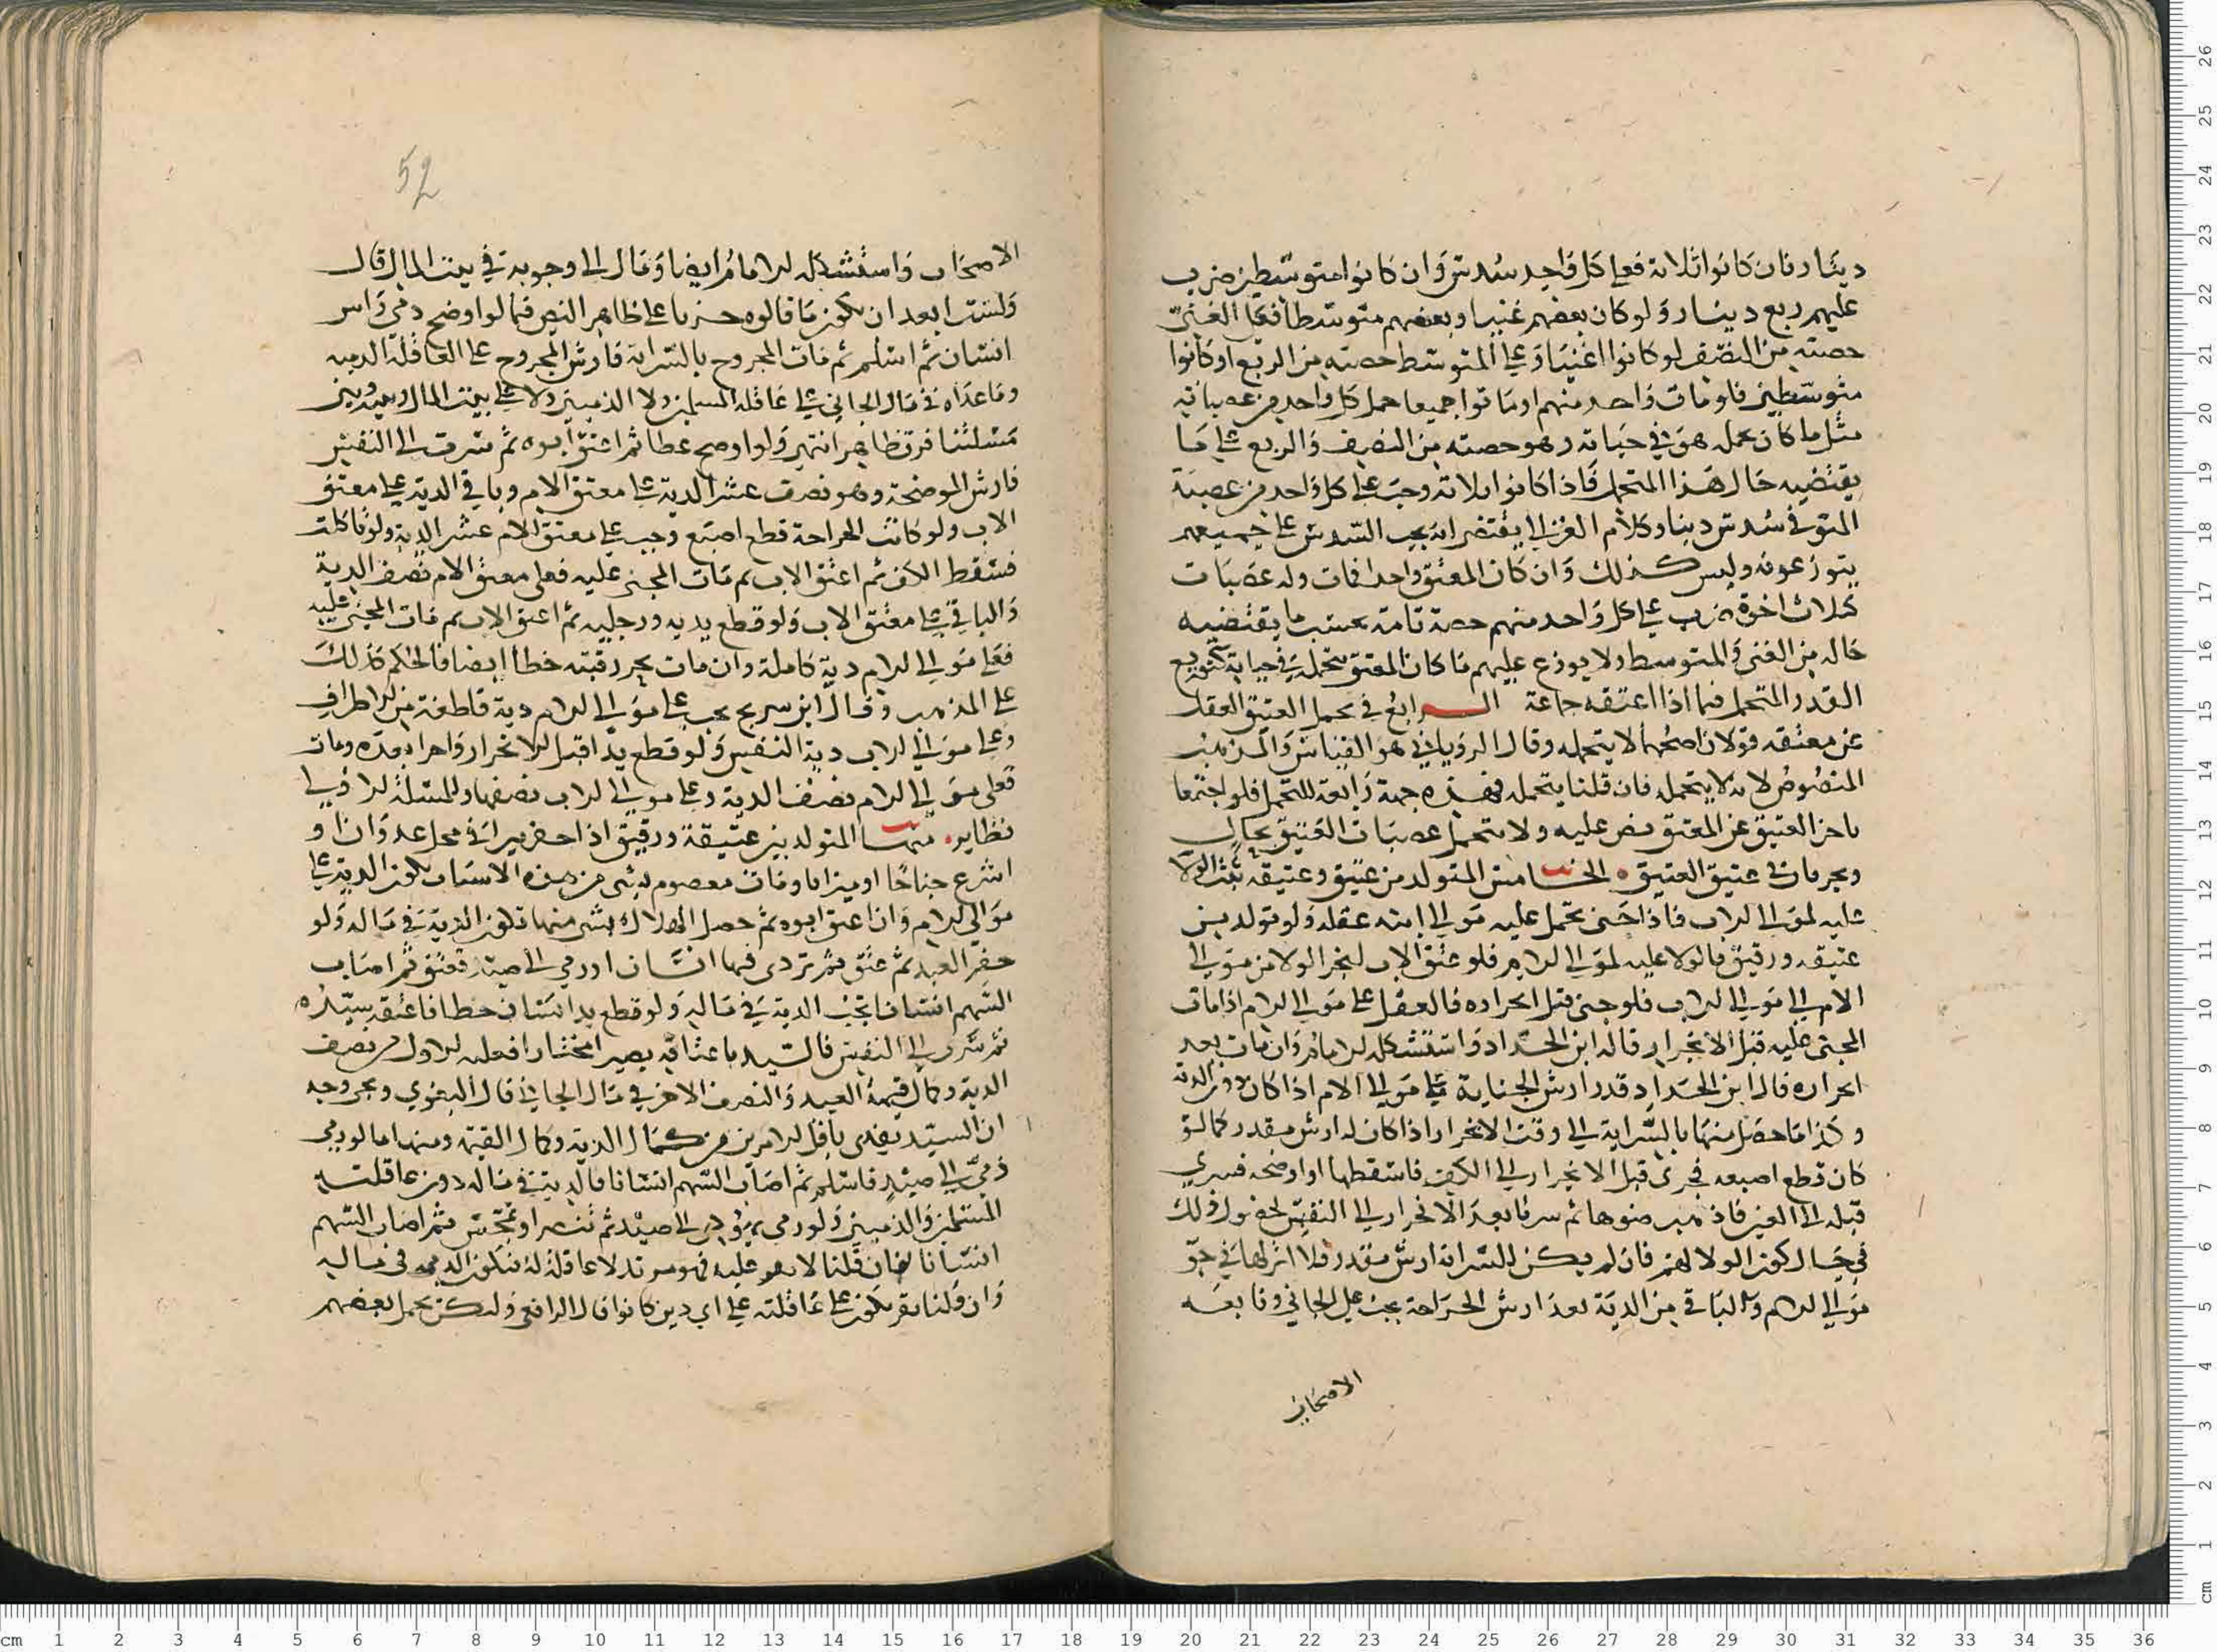 دينار فان كانوا ثلاثة فعلى كل واحد سدس وان كانوا متوسطين ضرب
عليهم ربع دينار ولو كان بعضهم غنيا وبعضهم متوسطا فعلى الغني
حصته من النصف لو كانوا اغنيا وعلى المتوسط حصته من الربع لو كانوا
متوسطين فلو مات واحد منهم او ماتوا جميعا حمل كل واحد من عصباته
مثل ما كان يحمله هو في حياته وهو حصته من النصف والربع على ما
يقتضيه حال هذا المتحمل فاذا كانوا ثلاثة وجب على كل واحد من عصبة
المتوفى سدس دينار وكلام الغزالي يقتضي انه يجب السدس على جميعهم
يتوزعونه وليس كذلك وان كان المعتق واحدا فمات وله عصبات
كثلاث اخوة ضرب على كل واحد منهم حصة تامة بحسب ما يقتضيه
حاله من الغنى والمتوسط ولا يوزع عليهم ما كان المعتق يتحمله في حياته كتوزيع
القدر المتحمل فيما اذا اعتقه جماعة الرابع في تحمل العتيق العقل
عن معتقه قولان اصحهما لا يتحمله وقال الروياني هو القياس والمذهب
المنصوص لا انه لا يتحمله فان قلنا يتحمله فهذه جهة رابعة للتحمل فلو اجتمعا
تاخر العتيق عن المعتق نص عليه ولا يتحمل عصبات العتيق بحال
ويجريان في عتيق العتيق الخامس المتولد من عتيق وعتيقة يثبت الولا
عليه لموالي الاب فاذا جنى تحمل عليه موالي ابيه عقله ولو تولد بين
عتيقه ورقيق فالولا عليه لموالي الام فلو عتق الاب انجر الولا من موالي
الام الى موالي الاب فلو جنى قبل انجراره فالعقل على موالي الام اذا مات
المجنى عليه قبل الانجرار قاله ابن الحداد واستشكله الامام وان مات بعد
انجراره قال ابن الحداد قدر ارش الجناية على موالي الام اذا كان دون الدية
وكذا ما حصل منها بالسراية الى وقت الانجرار اذا كان له ارش مقدر كما لو
كان قطع اصبعه فجرى قبل الانجرار الى الكف فاسقطها او اوضحه فسرى
قبله الى العين فاذهب ضوءها ثم سرتا بعد الانجرار الى النفس لحصول ذلك
في حال كون الولا لهم فان لم يكن للسراية ارش مقدر فلا اثر لها في حق
موالي الام والباقي من الدية بعد ارش الجراحة يجب على الجاني وتابعه
الاصحاب
52
الاصحاب واستشكله الامام ايضا ومال الى وجوبه في بيت المال قال
ولست ابعد ان يكون ما قالوه جريا على ظاهر النص فيما لو اوضح ذمي راس
انسان ثم اسلم ثم مات المجروح بالسراية فارش الجروح على العاقلة الذمية
وما عداه في مال الجاني على عاقلته المسلمين ولا الذميين ولا على بيت المال وبينه وبين
مسئلتنا فرق ظاهر انتهى ولو اوضح خطا ثم اعتق ابوه ثم سرت الى النفس
فارش الموضحة وهو نصف عشر الدية على معتق الام وباقي الدية على معتق
الاب ولو كانت الجراحة قطع اصبع وجب على معتق الام عشر الدية ولو تاكلت
فسقط الكف ثم اعتق الاب ثم مات المجنى عليه فعلى معتق الام نصف الدية
والباقي على معتق الاب ولو قطع يديه ورجليه ثم اعتق الاب ثم مات المجنى عليه
فعلى موالي الام دية كاملة وان مات بحز رقبته خطا ايضا فالحكم كذلك
على المذهب وقال ابن سريج يجب على موالي الام دية قاطعة من الاطراف
وعلى موالي الاب دية النفس ولو قطع يدا قبل الانجرار واحرا بعده ومات
فعلى موالي الام نصف الدية وعلى موالي الاب نصفها وللمسئلة الاولى
نظاير منها المتولد بين عتيقة ورقيق اذا حفر بيرا في محل عدوان او
اشرع جناحا او ميزابا ومات معصوم بشي من هذه الاسباب تكون الدية على
موالي الام وان اعتق ابوه ثم حصل الهلاك بشي منها تكون الدية في ماله ولو
حفر العبد ثم عتق ثم تردى فيها انسان او رمى الى صيد فعتق ثم اصاب
السهم انسانا تجب الدية في ماله ولو قطع يد انسان خطا فاعتقه سيده
ثم سرى الى النفس فالسيد باعتاقه يصير مختارا فعليه الاول من نصف
الدية وكمال قيمة العبد والنصف الاخر في مال الجاني قال البغوي ويجي وجه
ان السيد يفدي باقل الامرين من كمال الدية وكمال القيمة ومنها ما لو رمى
ذمي الى صيد فاسلم ثم اصاب السهم انسانا فالدية في ماله دون عاقلته
المسلمين والذميين ولو رمى يهودي الى صيد ثم تنصر او تمجس ثم اصاب السهم
انسانا فان قلنا لا يقر عليه فهو مرتد لا عاقلة له فتكون الدية في ماله
وان قلنا يقر تكون على عاقلته على اي دين كانوا قال الرافعي ولتكن تحمل بعضهم